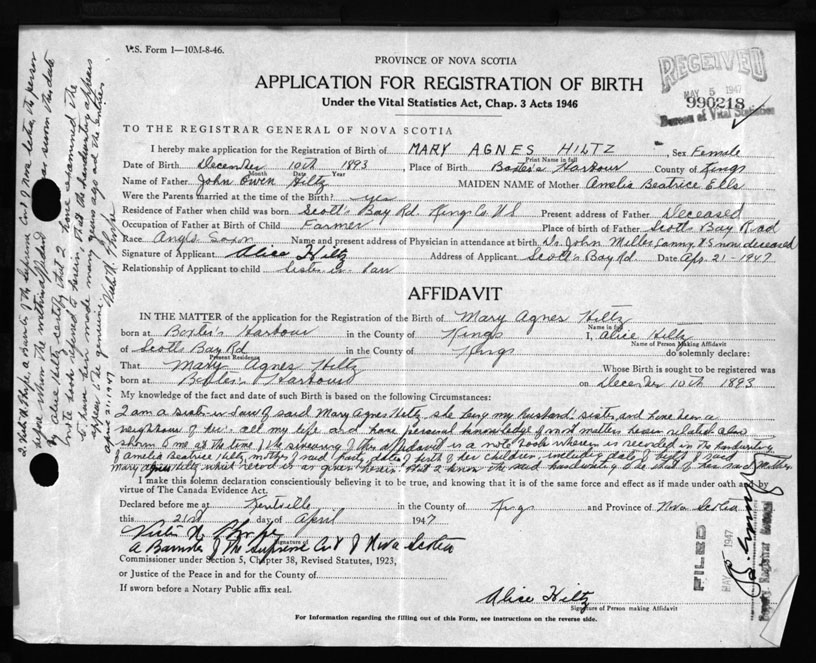 V.S. Form 1—10M-8-46.
PROVINCE OF NOVA SCOTIA
APPLICATION FOR REGISTRATION OF BIRTH
Under the Vital Statistics Act, Chap. 3 Acts 1946
RECEIVED
MAY 5 1947
990218
Bureau of Vital Statistics
TO THE REGISTRAR GENERAL OF NOVA SCOTIA
I hereby make application for the Registration of Birth of MARY AGNES HILTZ, Sex Female
Print Name in full
Date of Birth December 10th 1893, Place of Birth Boxter's Harbour County of Kings
Month Date Year
Name of Father John Owen Hiltz MAIDEN NAME of Mother Amelia Beatrice Ells
Were the Parents married at the time of Birth? yes
Residence of Father when child was born Scott's Bay Rd. Kings Co. N S Present address of Father Deceased
Occupation of Father at Birth of Child Farmer Place of birth of Father Scott's Bay Road
Race Anglo Saxon Name and present address of Physician in attendance at birth Dr. John Miller, Canning, N S now deceased
Signature of Applicant Alice Hiltz Address of Applicant Scott's Bay Rd. Date Apr. 21 - 1947
Relationship of Applicant to child Sister in law
AFFIDAVIT
IN THE MATTER of the application for the Registration of the Birth of Mary Agnes Hiltz
Name in full
born at Boxter's Harbour in the County of Kings I, Alice Hiltz
Name of Person Making Affidavit
of Scott's Bay Rd in the County of Kings do solemnly declare:
Present Residence
That Mary Agnes Hiltz Whose Birth is sought to be registered was
born at Boxter's Harbour on December 10th 1893
My knowledge of the fact and date of such Birth is based on the following Circumstances:
I am a sister in law of said Mary Agnes Hiltz, she being my husband's sister, and have been a
neighbour of her's all my life and have personal knowledge of most matters herein related. Also
shown to me at the time of the swearing of this affidavit is a note book wherein is recorded in the handwriting
of Amelia Beatrice Hiltz, mother of said party, dates of birth of her children, including date of birth of said
Mary Agnes Hiltz, which record is as given herein. That I know the said handwriting to be that of her said Mother.
I make this solemn declaration conscientiously believing it to be true, and knowing that it is of the same force and effect as if made under oath and by
virtue of The Canada Evidence Act.
Declared before me at Kentville in the County of Kings and Province of Nova Scotia
this 21st day of April 1947
Signature of
A Barrister of the Supreme Court of Nova Scotia
Commissioner under Section 5, Chapter 38, Revised Statutes, 1923,
or Justice of the Peace in and for County of
If sworn before a Notary Public affix seal.
Alice Hiltz
Signature of Person making Affidavit
For Information regarding the filling out of this Form, see instructions on the reverse side.
a Barrister of the Supreme Court of Nova Scotia, the person
before whom the within affidavit was sworn this date
by Alice Hiltz certify that I have examined the
note book referred to herein, that the handwriting appears
to have been made many years ago and the entries
appear to be genuine.
April 21. 1947
FILED
MAY 1947